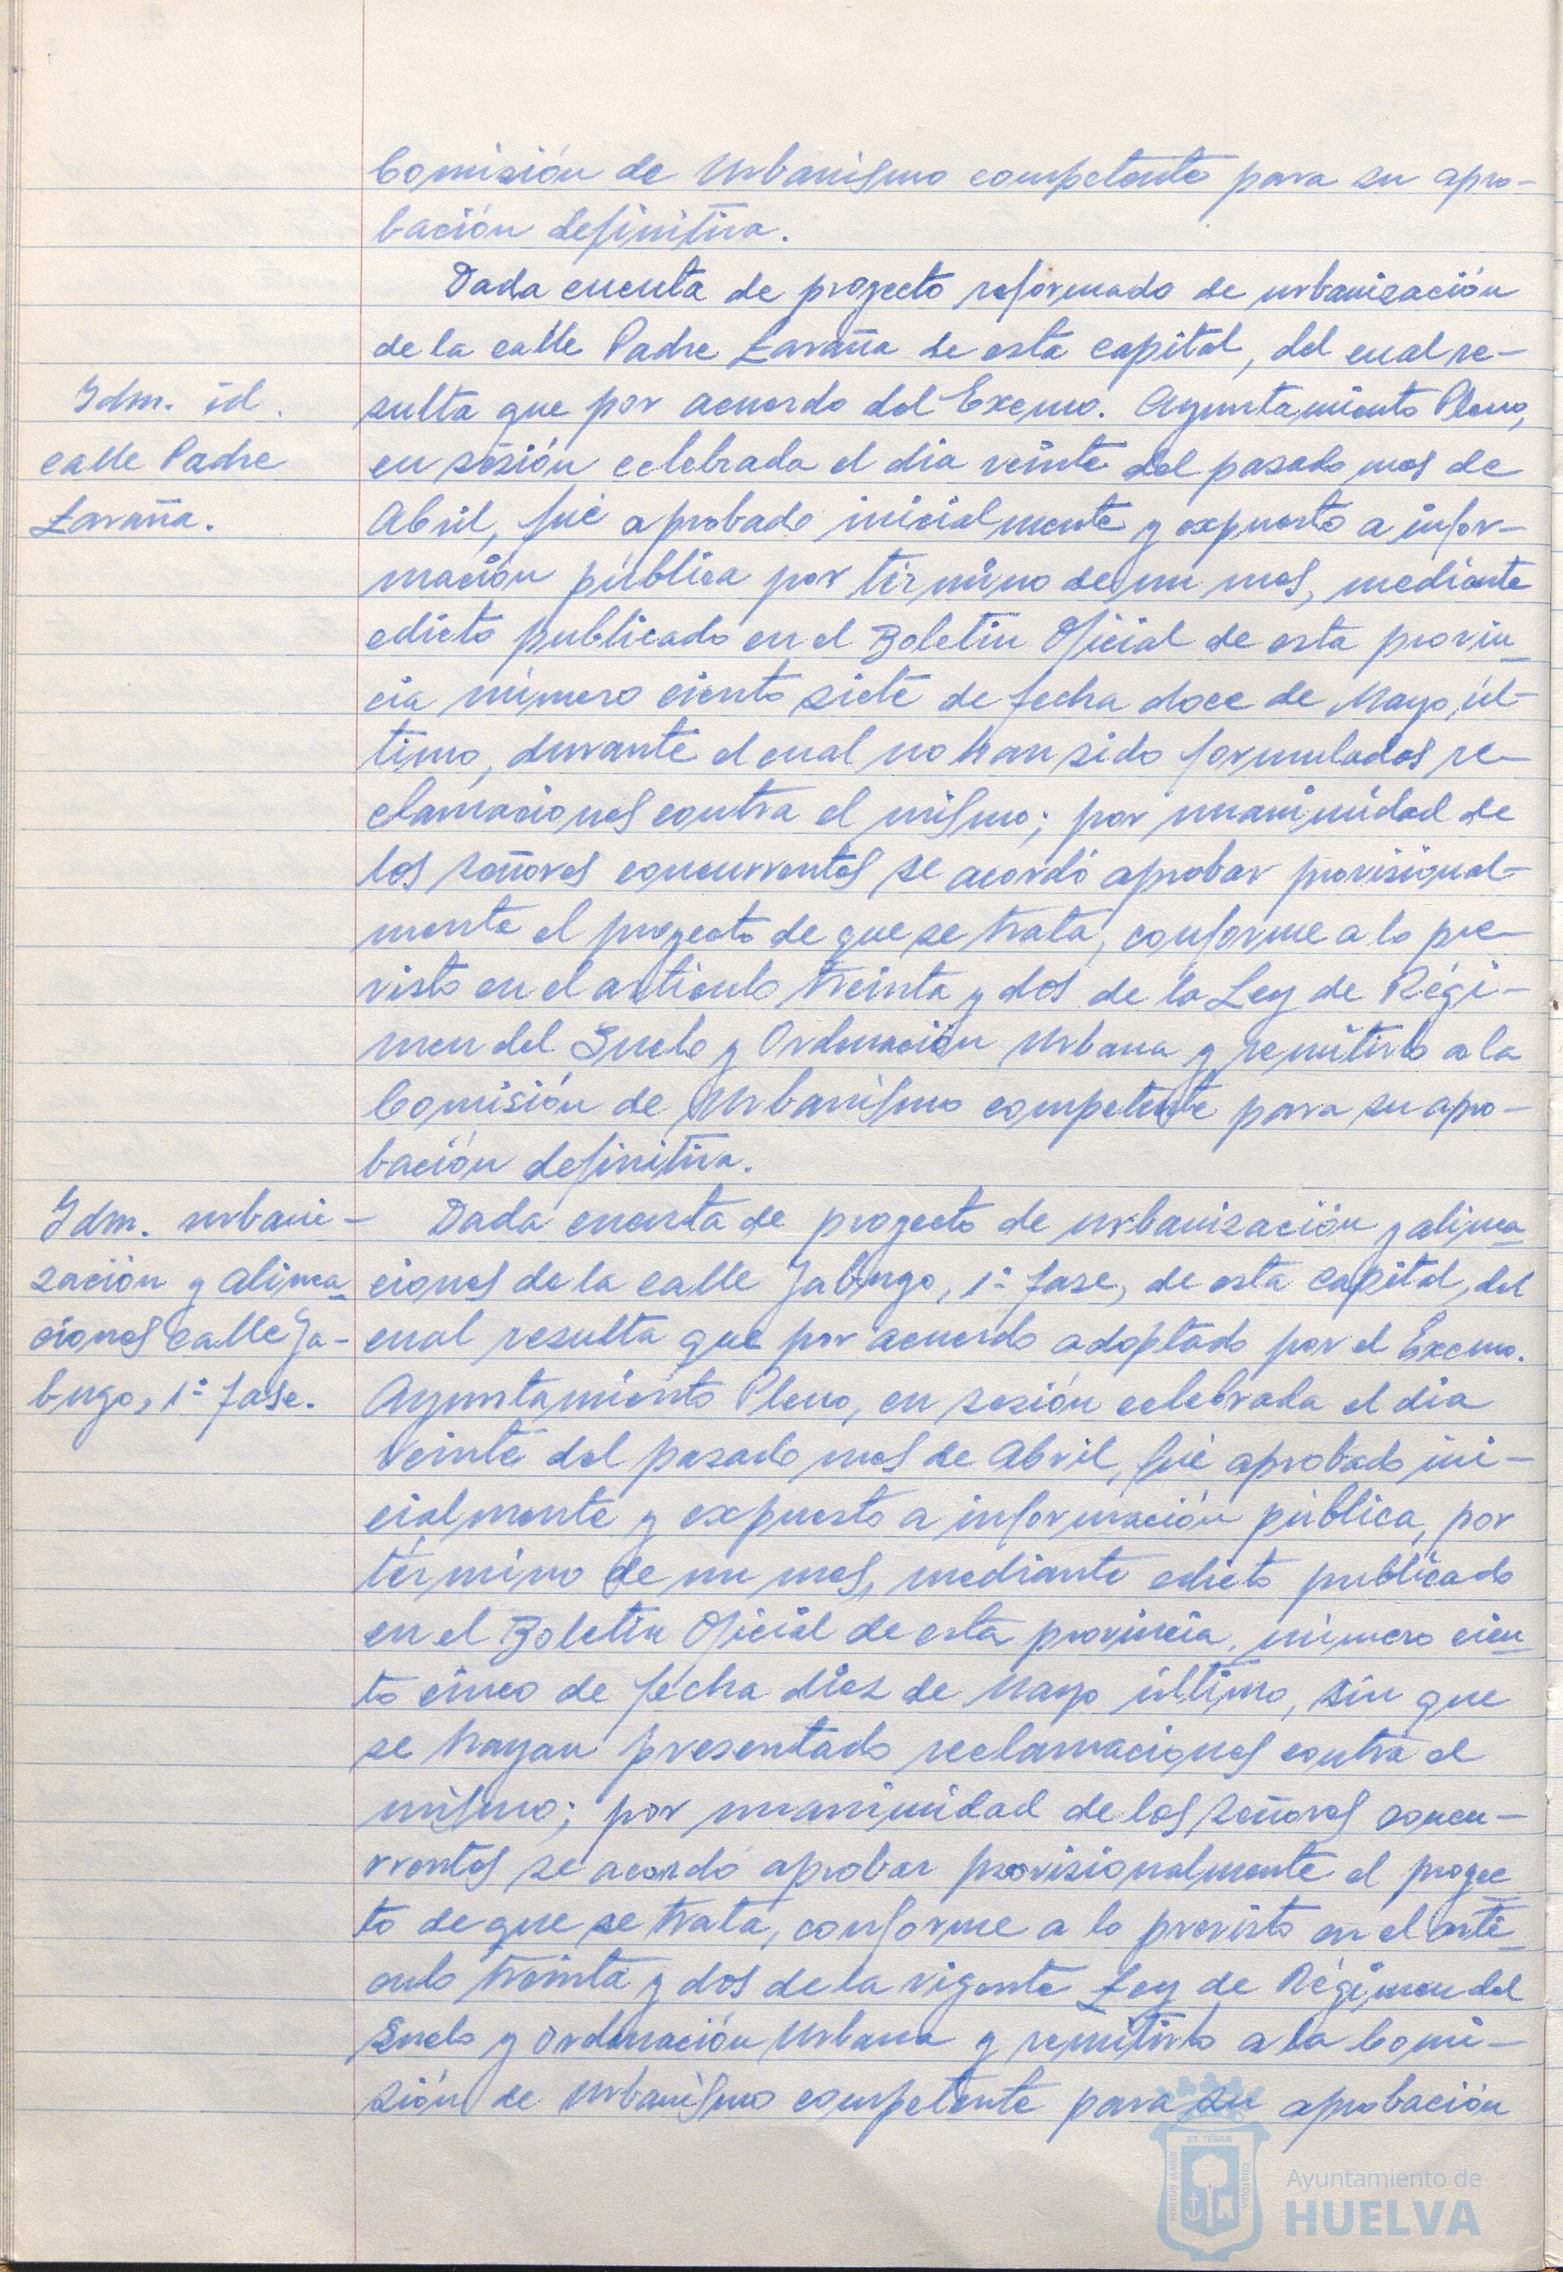 Comisión de Urbanismo competente para su apro-
bación definitiva.
Dada cuenta de proyecto reformado de urbanización
de la calle Padre Laraña de esta capital, del cual re-
Idm. id.
calle Padre
Laraña.
sulta que por acuerdo del Excmo. Ayuntamiento Pleno,
en sesión celebrada el dia veinte del pasado mes de
Abril, fué aprobado inicialmente y expuesto a infor-
mación pública por término de un mes, mediante
edicto publicado en el Boletin Oficial de esta provin-
cia número ciento siete de fecha doce de Mayo, úl-
timo, durante el cual no han sido formulados re-
clamaciones contra el mismo; por unanimidad de
los señores concurrentes se acordó aprobar provisional-
mente el proyecto de que se trata, conforme a lo pre-
visto en el artículo treinta y dos de la Ley de Régi-
men del Suelo y Ordenación Urbana y remitirlo a la
Comisión de Urbanismo competente para su apro-
bación definitiva.
Idm. urbani-
zación y alinea-
ciones calle Ja-
bugo, 1ª fase.
Dada cuenta de proyecto de urbanización y alinea-
ciones de la calle Jabugo, 1ª fase, de esta capital, del
cual resulta que por acuerdo adoptado por el Excmo.
Ayuntamiento Pleno, en sesión celebrada el dia
veinte del pasado mes de Abril, fué aprobado ini-
cialmente y expuesto a información pública, por
término de un mes, mediante edicto publicado
en el Boletin Oficial de esta provincia, número cien-
to cinco de fecha diez de Mayo último, sin que
se hayan presentado reclamaciones contra el
mismo; por unanimidad de los señores concu-
rrentes se acordó aprobar provisionalmente el proyec-
to de que se trata, conforme a lo previsto en el artí-
culo treinta y dos de la vigente Ley de Régimen del
Suelo y Ordenación Urbana y remitirlo a la Comi-
sión de Urbanismo competente para su aprobación
PORTUS MARIS
ET TERRÆ
CUSTODIA
Ayuntamiento de
HUELVA